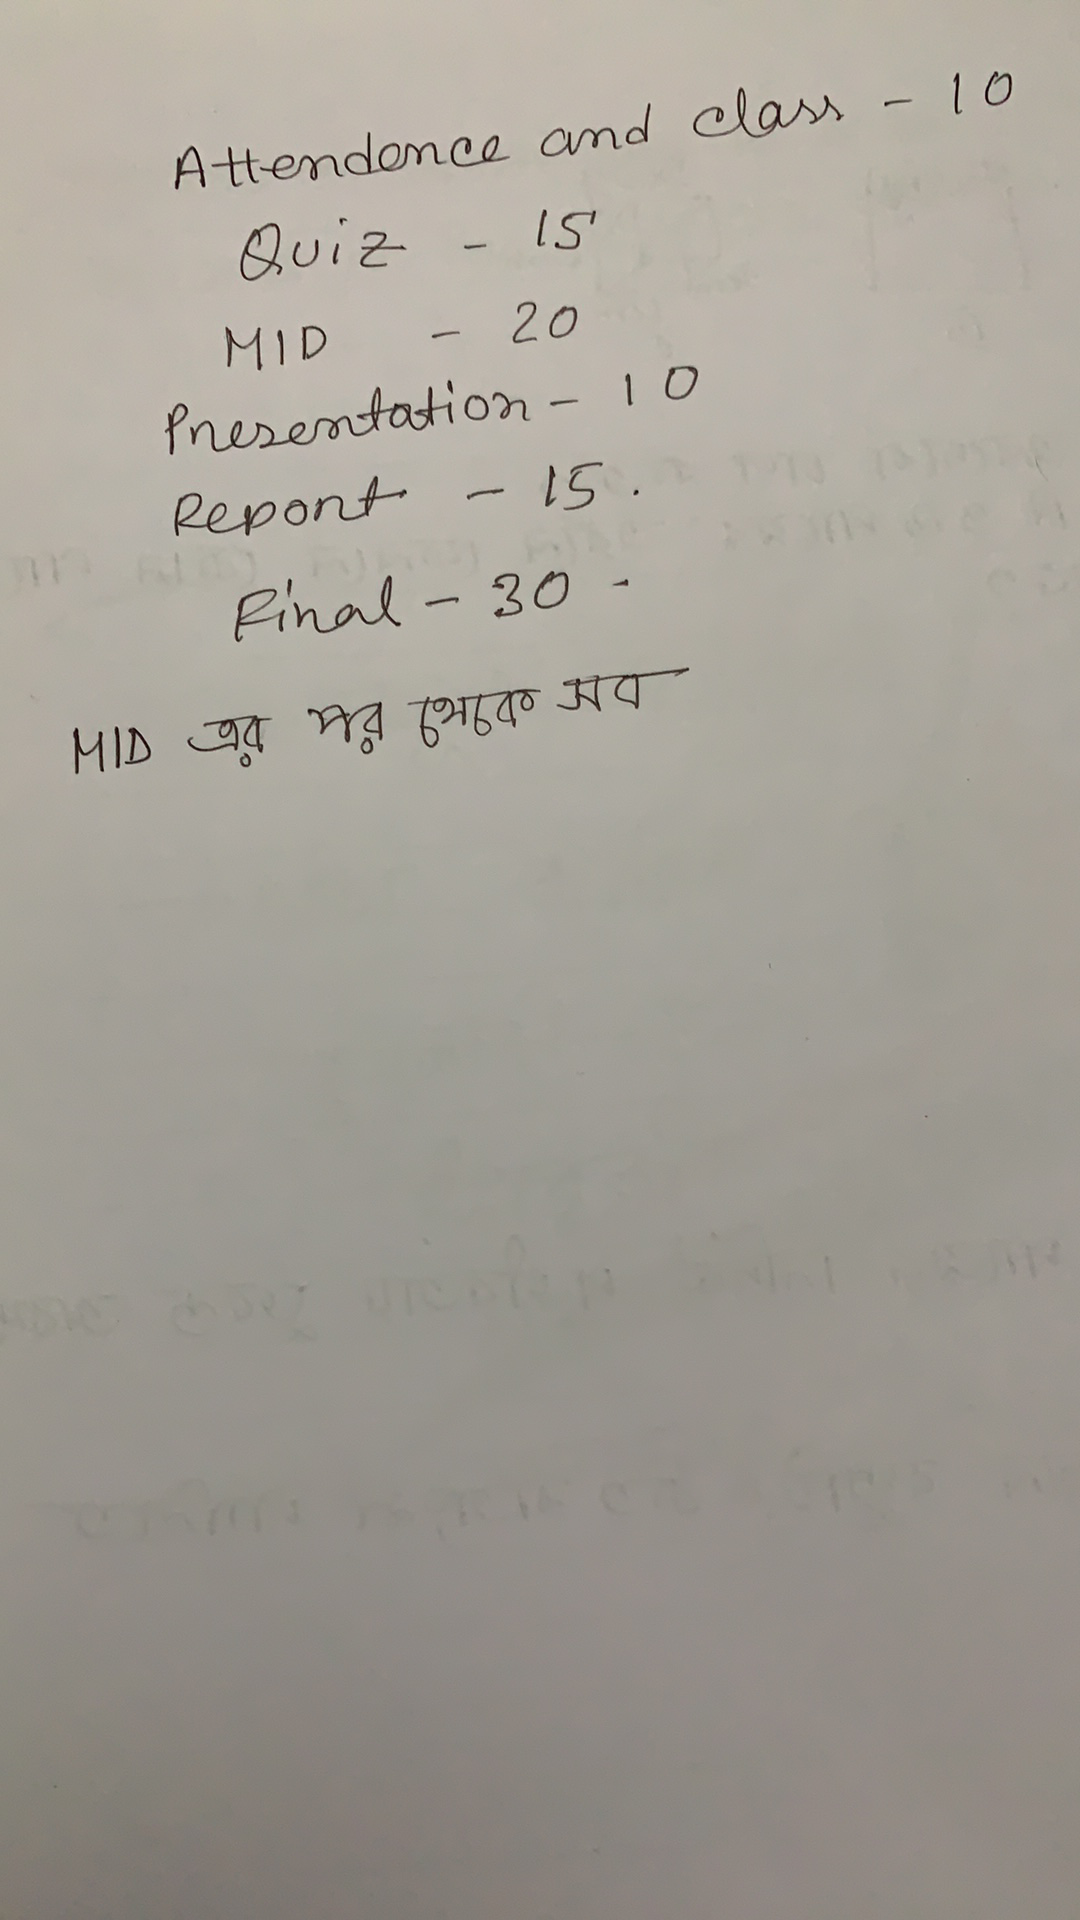 Attendence and class - 10
Quiz - 15
MID - 20
Presentation - 10
Report - 15.
Final - 30 -
MID এর পর থেকে সব